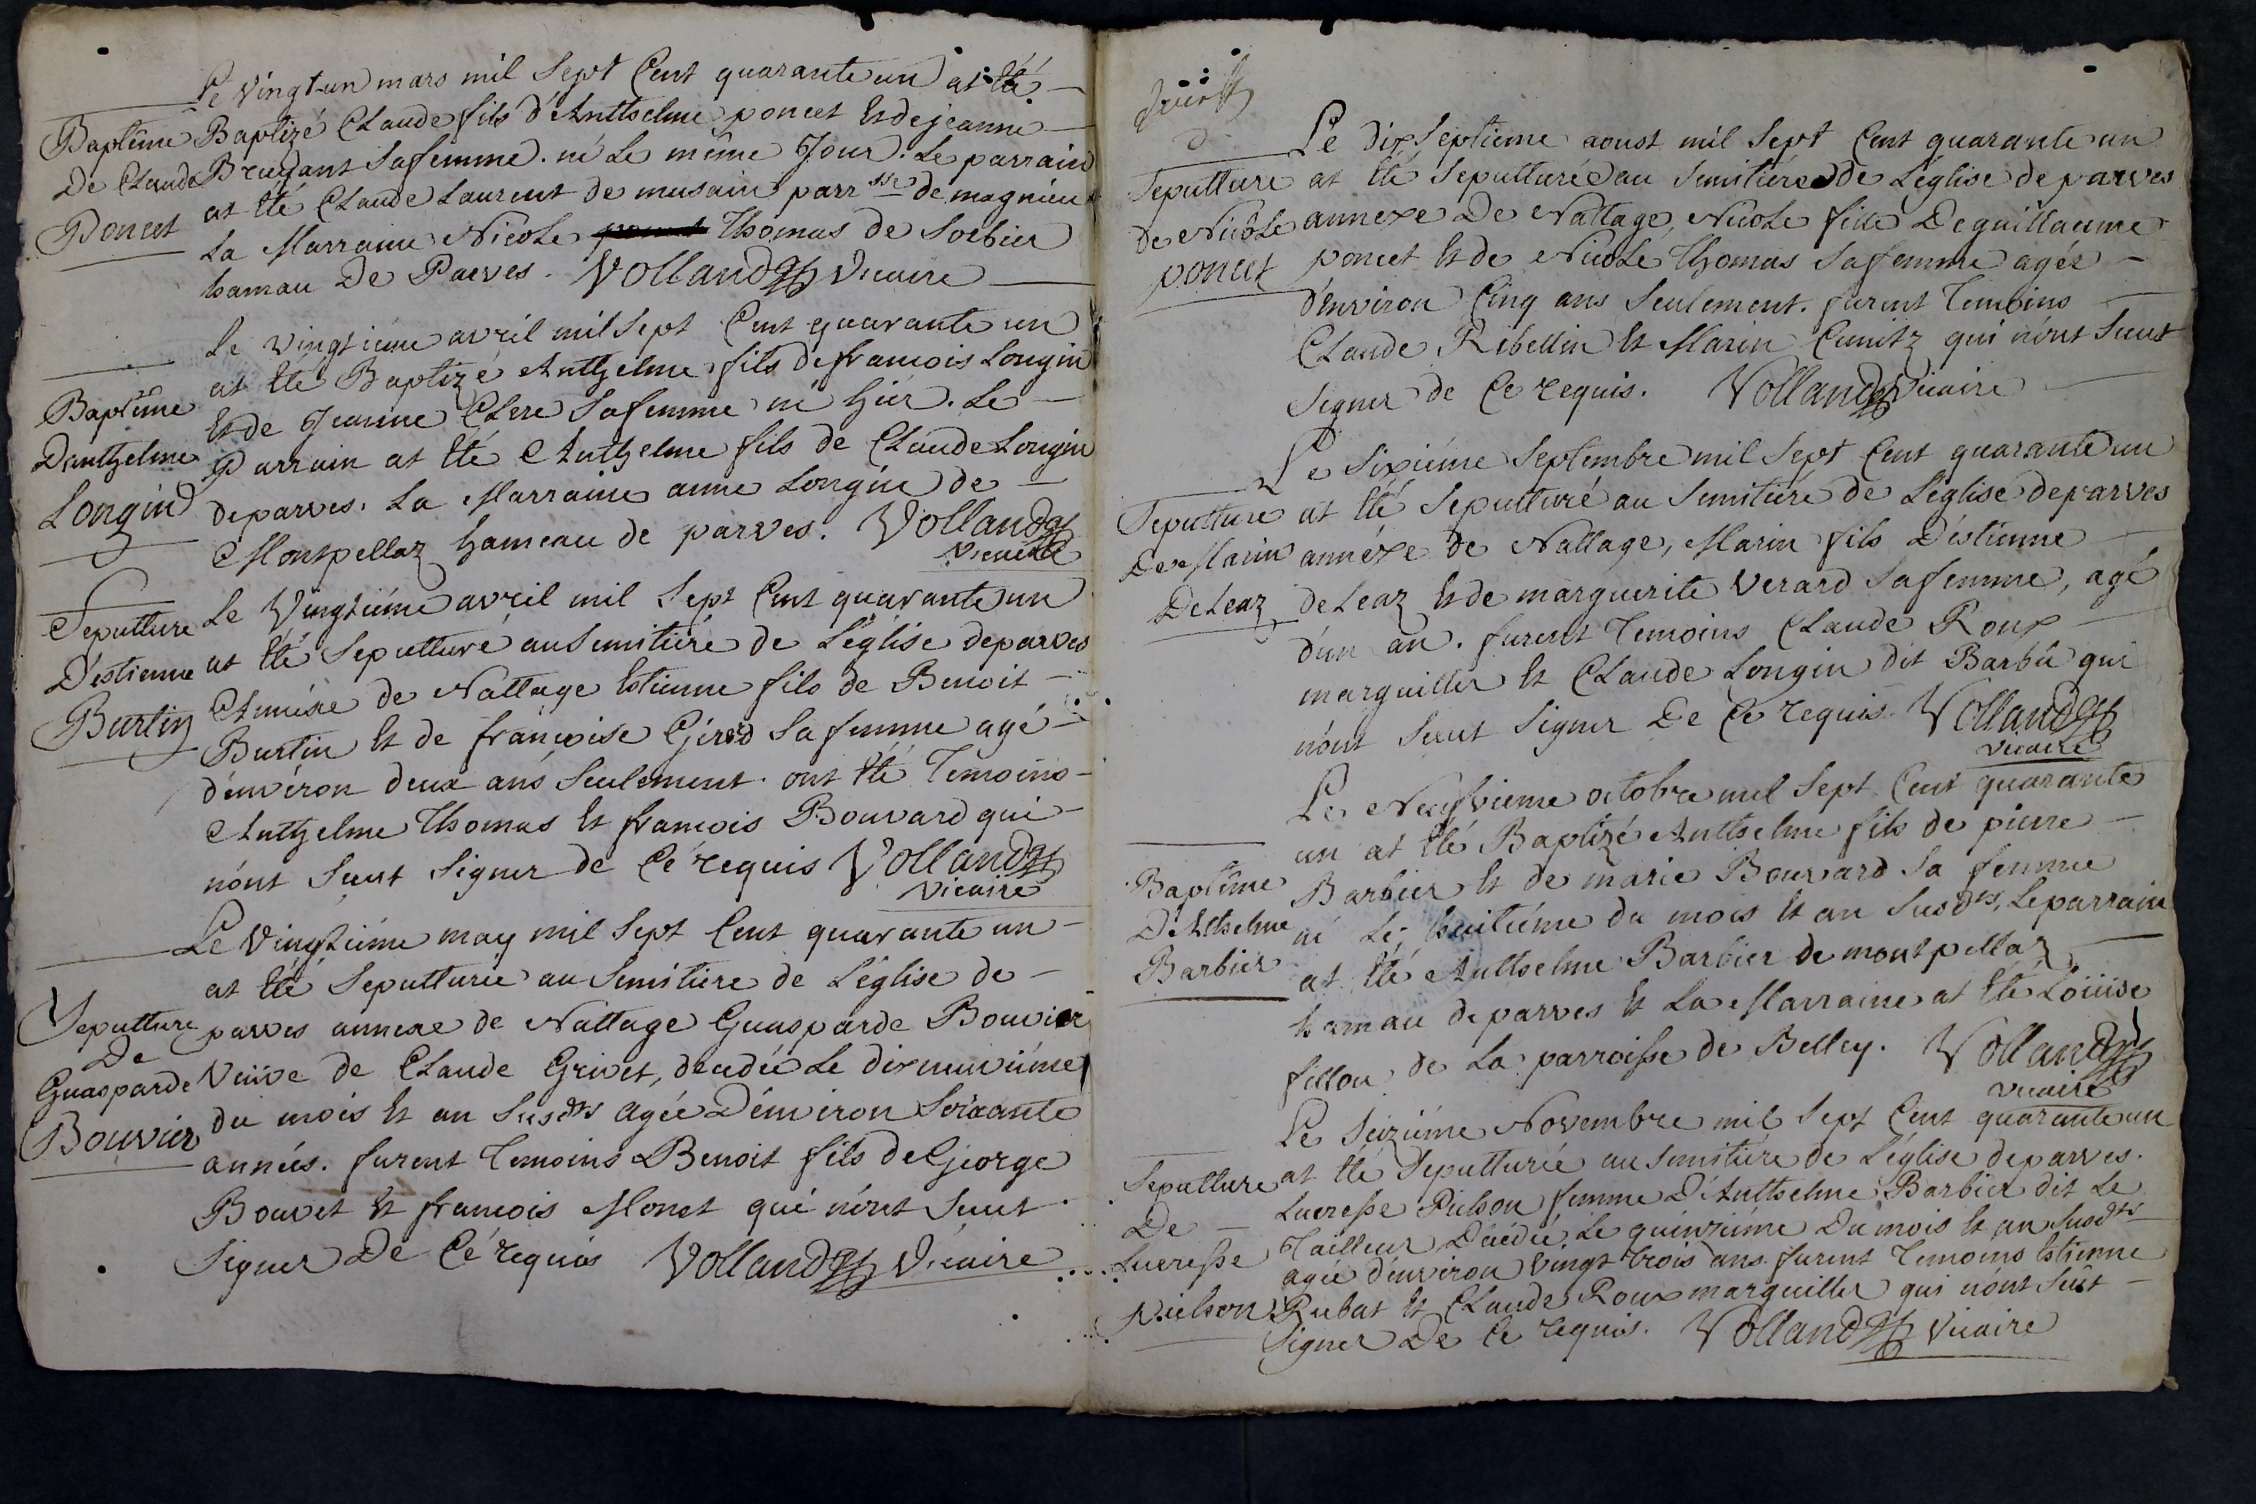 Le vingt-un mars mil Sept Cent quarante un at êté
Baptême Baptizé Claude fils d'Anthelme poncet Et de jeanne
De Claude Bruyant Safemme. né Le même Jour. Le parrain
Poncet at êté Claude Laurent de musain parr.sse de magnieu
La Marraine Nicole Thomas de Sorbier
hamau De Parves. Volland Vicaire
Le vingtieme avril mil Sept Cent quarante un
at êté Baptizé Anthelme fils de francois Longin
Baptême Et de Jeanne Clere Safemme né hiér. Le
Danthelme Parrain at êté Anthelme fils de Claude Longin
Longin deparves. La Marraine anne Longin de
Montpellaz hameau de parves. Volland
Vicaire
Le Vingtiéme avril mil Sept Cent quarante un
Sepulture at êté Sepulturé au Semitiére de L'église deparves
D'éstienne Annéxe de Nattage Estienne fils de Benoit
Burtin Burtin Et de françoise Gérrd Sa femme agé
d'énviron deux ans Seulement. ont êté Temoins
Anthelme Thomas Et francois Bouvard qui
n'ont Sceut Signer de Cé requis Volland
Vicaire
Le Vingtiéme may mil Sept Cent quarante un
at êté Sepulturée au Semitiére de L'église de
Sepulture parves annexe de Nattage Guasparde Bouvier
De
Guasparde Veuve de Claude Grivet, decedée Le dixneuviéme
Bouvier du mois Et an Susdts agée D'énviron Soixante
années. furent Temoins Benoit fils de George
Bouvet Et francois Monet qui n'ont Sceut
Signer De Cé requis Volland Vicaire
Le dix Septieme aoust mil Sept Cent quarante un
Sepulture at êté Sepulturée au Semitiére de L'église de parves
de Nicole annexe De Nattage, Nicole fille De guillaume
poncet poncet Et de Nicole Thomas Safemme agée
d'énviron Cinq ans Seulement. furent Temoins
Claude Ribellin Et Marin Cumitz qui n'ont Sceut
Signer de Ce requis. Volland Vicaire
Le Sixiéme Septembre mil Sept Cent quarante un
Sepulture at êté Sepulturé au Semitiére de L'église deparves
De Marin annéxe de Nattage, Marin fils D'éstienne
DeLeaz deLeaz Et de marguerite Verard Safemme, agé
d'un an. furent Temoins Claude Roux
marguillier Et Claude Longin dit Barbû qui
n'ont Sceut Signer De Ce requis. Volland
Vicaire
Le Neufvieme octobre mil Sept Cent quarante
un at êté Baptizé Anthelme fils de pierre
Baptême Barbier Et de marie Bouvard Sa femme
D'Athelme né Le huitiéme du mois Et an Susdts, Leparrain
Barbier at êté Anthelme Barbier de montpellaz
hamau deparves Et La Marraine at êté Loüise
fillon de La parroisse de Belley. Volland
Vicaire
Le Seiziéme Novembre mil Sept Cent quarante un
Sepulture at êté Sepulturée au Semitiére de L'église deparves.
De Lucresse Pielson femme D'Anthelme Barbier dit Le
Lucresse Tailleur Décédée Le quinziéme Du mois Et an Susdts
agée d'énviron Vingt trois ans. furent Temoins Estienne
Pielson Rubat Et Claude Roux marguillier qui n'ont Sceut
Signer De Ce requis. Volland Vicaire